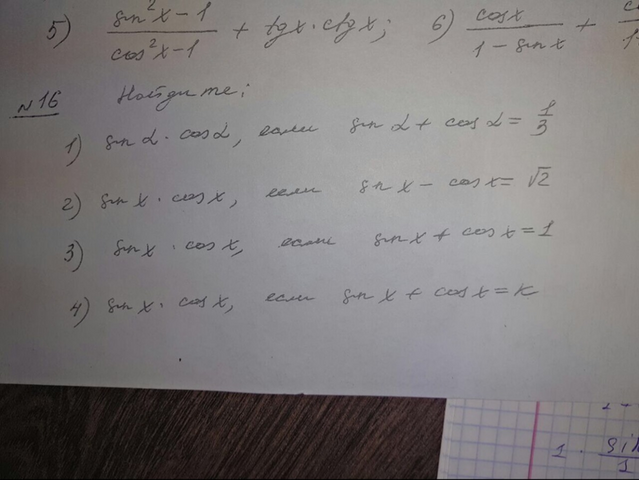 5) (sin²x - 1)/(cos²x - 1) + tgx · ctgx; 6) cosx/(1 - sinx) +
№16 Найдите:
1) sin α · cos α, если sin α + cos α = 1/3
2) sin x · cos x, если sin x - cos x = √2
3) sin x · cos x, если sin x + cos x = 1
4) sin x · cos x, если sin x + cos x = к
1 · sin/1